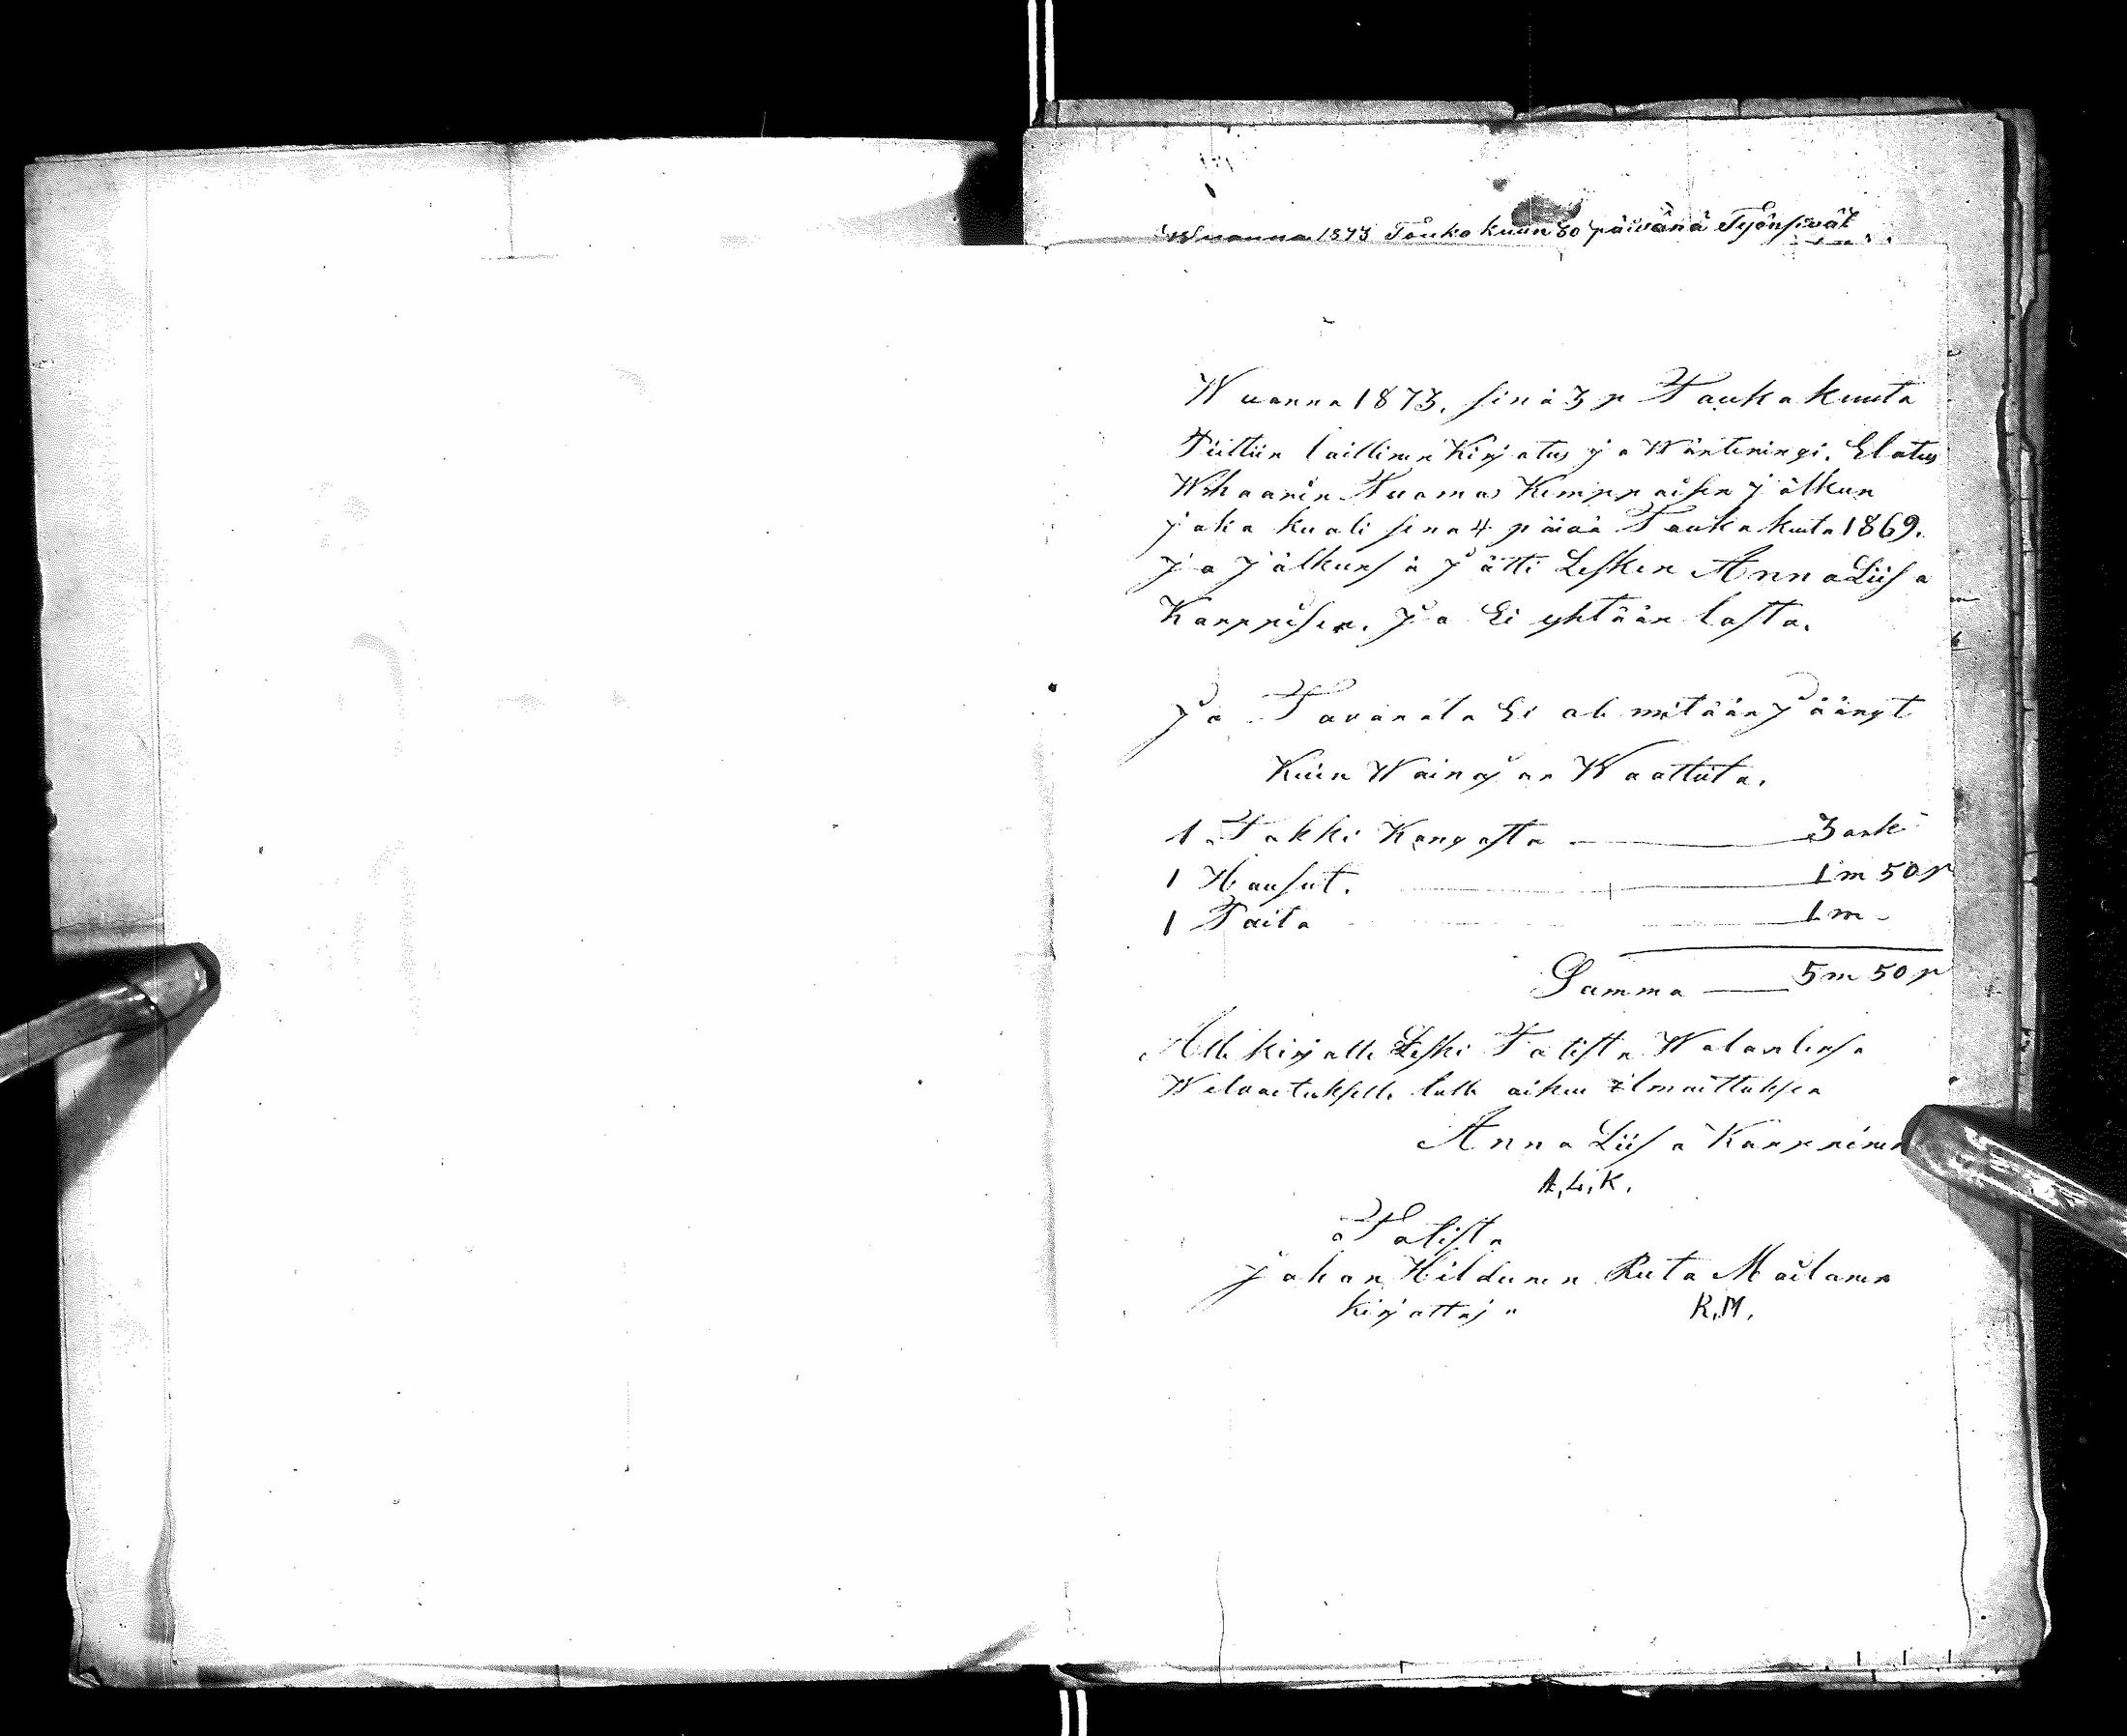 Wuanna 1873 Touko kuun 30 päivänä Työnsivät
Wuonna 1873. sinä 3 p Toukokuuta
Piettiin laillinen Kirjotus ja Wärteringi. Elatus
Wihaanin Tuomas Kemppaisen jälkun
joka kuoli sina 4 päiää Toukokuta 1869.
ja jälkunsä jätti Lesken Anna Liisa
Karppisen. ja Ei yhtään lasta.
ja Tavarata Ei ole mitään jäänyt
Kuin Wainajan Waatteita.
1 Takki Kangasta 3 mk
1 Housut. 1 m 50 p
1 Paita 1 m
Summa 5 m 50 p
Alle kirjotti Leski Totista Walanlinsa
Welvoituksella tällä aikee ilmoittuksen
Anna Liisa Karppinen
A.L.K.
Totista
Johan Hildunen Reeta Moilanen
kirjottaja R.M.